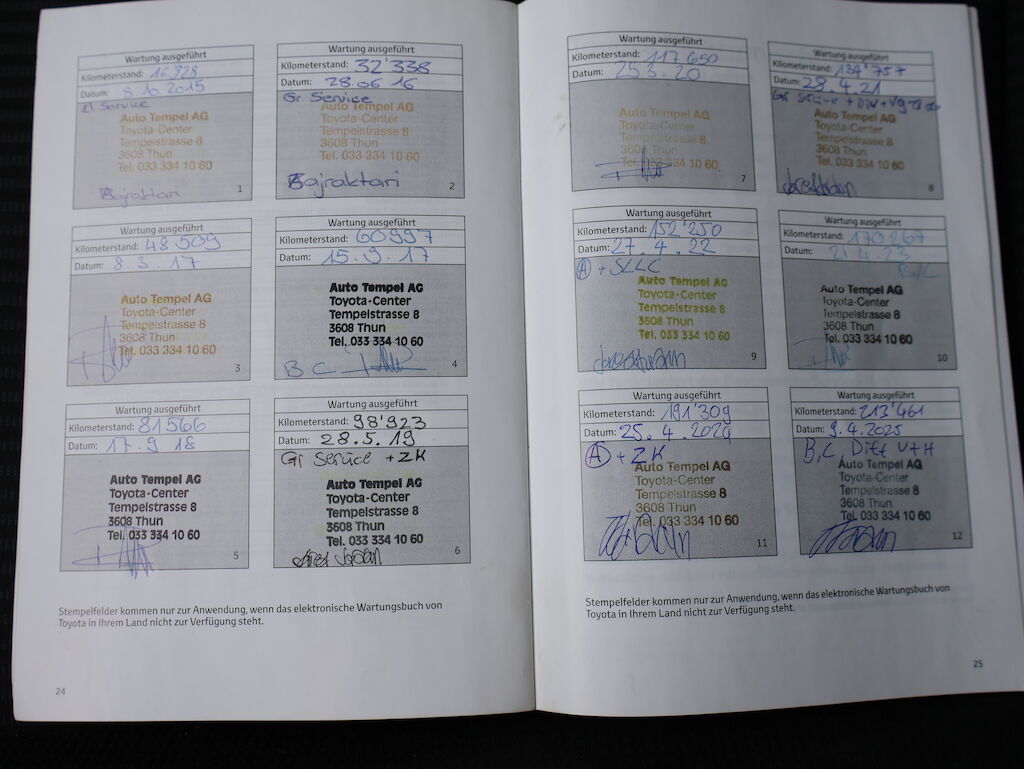 Wartung ausgeführt
Kilometerstand: 16.928
Datum: 8.10.2015
kl Service
Auto Tempel AG
Toyota-Center
Tempelstrasse 8
3608 Thun
Tel. 033 334 10 60
Bajraktari
1
Wartung ausgeführt
Kilometerstand: 32'338
Datum: 28.06.16
Gr Service
Auto Tempel AG
Toyota-Center
Tempelstrasse 8
3608 Thun
Tel. 033 334 10 60
Bajraktari
2
Wartung ausgeführt
Kilometerstand: 48 509
Datum: 8.3.17
Auto Tempel AG
Toyota-Center
Tempelstrasse 8
3608 Thun
Tel. 033 334 10 60
3
Wartung ausgeführt
Kilometerstand: 60997
Datum: 15.9.17
Auto Tempel AG
Toyota-Center
Tempelstrasse 8
3608 Thun
Tel. 033 334 10 60
B C
4
Wartung ausgeführt
Kilometerstand: 81566
Datum: 17.9.18
Auto Tempel AG
Toyota-Center
Tempelstrasse 8
3608 Thun
Tel. 033 334 10 60
5
Wartung ausgeführt
Kilometerstand: 98'923
Datum: 28.5.19
Gr Service + ZK
Auto Tempel AG
Toyota-Center
Tempelstrasse 8
3608 Thun
Tel. 033 334 10 60
6
Stempelfelder kommen nur zur Anwendung, wenn das elektronische Wartungsbuch von
Toyota in Ihrem Land nicht zur Verfügung steht.
24
Wartung ausgeführt
Kilometerstand: 117 650
Datum: 25.3.20
Auto Tempel AG
Toyota-Center
Tempelstrasse 8
3608 Thun
Tel. 033 334 10 60
7
Wartung ausgeführt
Kilometerstand: 134'757
Datum: 28.4.21
Gr Service + Diff + VG
Auto Tempel AG
Toyota-Center
Tempelstrasse 8
3608 Thun
Tel. 033 334 10 60
8
Wartung ausgeführt
Kilometerstand: 152'250
Datum: 27.4.22
A + SLLC
Auto Tempel AG
Toyota-Center
Tempelstrasse 8
3608 Thun
Tel. 033 334 10 60
9
Wartung ausgeführt
Kilometerstand: 170267
Datum: 21.4.23
B/C
Auto Tempel AG
Toyota-Center
Tempelstrasse 8
3608 Thun
Tel. 033 334 10 60
10
Wartung ausgeführt
Kilometerstand: 191'309
Datum: 25.4.2024
A + ZK
Auto Tempel AG
Toyota-Center
Tempelstrasse 8
3608 Thun
Tel. 033 334 10 60
11
Wartung ausgeführt
Kilometerstand: 213'461
Datum: 9.4.2025
B, C, Diff V+H
Auto Tempel AG
Toyota-Center
Tempelstrasse 8
3608 Thun
Tel. 033 334 10 60
12
Stempelfelder kommen nur zur Anwendung, wenn das elektronische Wartungsbuch von
Toyota in Ihrem Land nicht zur Verfügung steht.
25